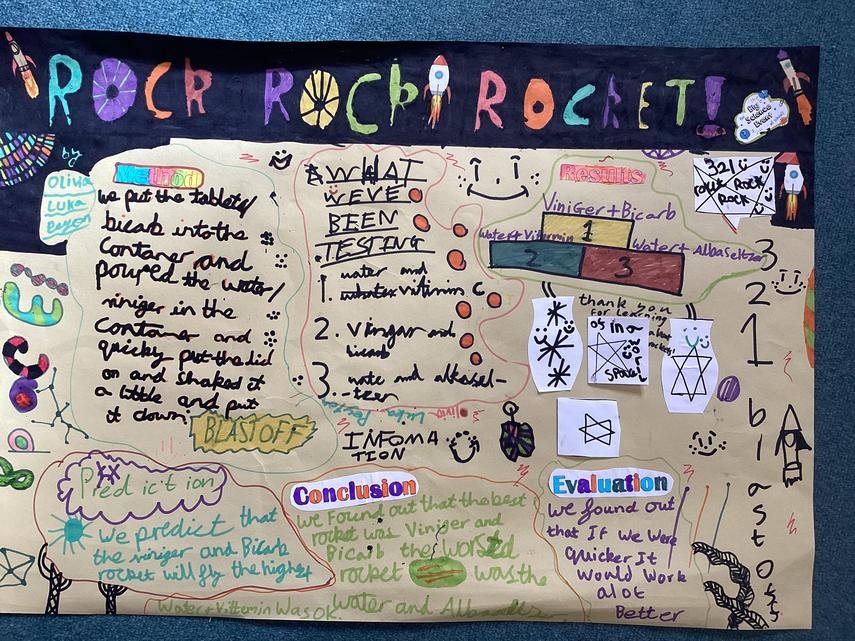 ROCK ROCK ROCKET!
My
Science
Event
by
Olivia
Luka
Method
we put the tablets/
bicarb into the
Contaner and
poured the water/
viniger in the
Contaner and
quicky put the lid
on and shaked it
a little and put
it down.
BLAST OFF
WHAT
WEVE
BEEN
TESTING
1. water and
vitimins C
2. vingar and
bicarb
3. wate and alkasel-
tzer
INFOMA
TION
Results
Viniger + Bicarb
1
water + Vitarmin
2
Water + Albaseltzer
3
321
rock
Rock
thank you
for learning
about
rockets!
as in a
space!
3
2
1
b
l
a
s
t
O
f
f
Prediction
we predict that
the viniger and Bicarb
rocket will fly the highest
Conclusion
we Found out that the best
rocket was Viniger and
Bicarb the worsed
rocket was the
water and
Water + Vittermin Was OK.
Evaluation
we found out
that If we were
quicker It
would work
alot
Better